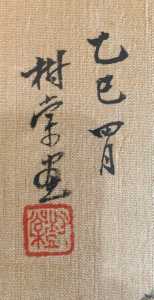 乙巳四月
樹棠畫